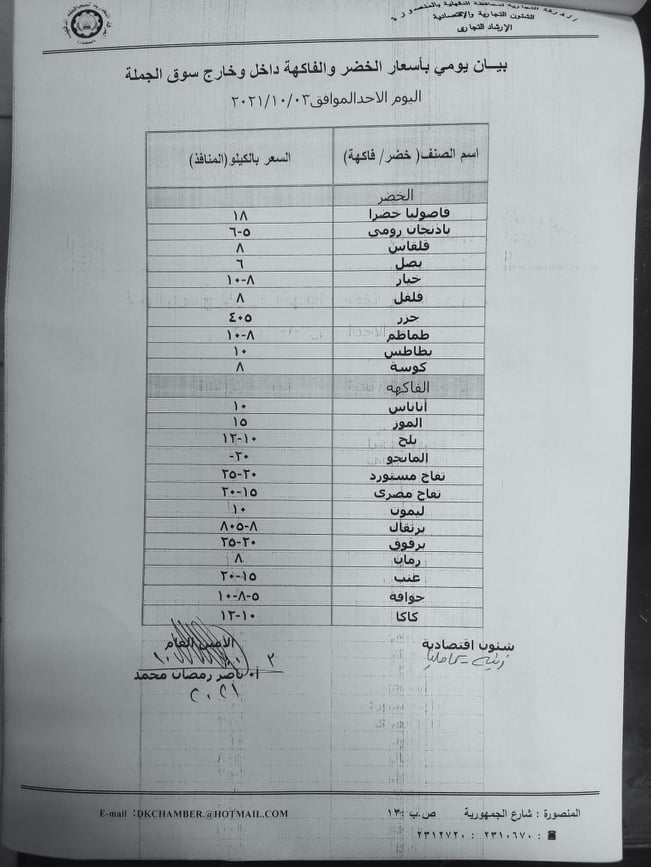 الغرفة التجارية لمحافظة الدقهلية بالمنصورة
الشئون التجارية والإقتصادية
الإرشاد التجارى
بيـــان يومي بأسعار الخضر والفاكهة داخل وخارج سوق الجملة
اليوم الاحدالموافق٢٠٢١/١٠/٠٣
اسم الصنف( خضر/ فاكهة) السعر بالكيلو(المنافذ)
الخضر
فاصوليا خضرا ١٨
باذنجان رومي ٥-٦
قلقاس ٨
بصل ٦
خيار ٨-١٠
فلفل ٨
جزر ٤٠٥
طماطم ٨-١٠
بطاطس ١٠
كوسة ٨
الفاكهه
أناناس ١٠
الموز ١٥
بلح ١٠-١٢
المانجو ٢٠-
تفاح مستورد ٢٠-٢٥
تفاح مصرى ١٥-٢٠
ليمون ١٠
برتقال ٨-٨٠٥
برقوق ٢٠-٢٥
رمان ٨
عنب ١٥-٢٠
جوافة ٥-٨-١٠
كاكا ١٠-١٢
شئون اقتصادية الأمين العام
أ. ناصر رمضان محمد
٢٠٢١
المنصورة : شارع الجمهورية ص.ب : ١٣ E-mail :DKCHAMBER.@HOTMAIL.COM
☎ : ٢٣١٠٦٧٠ : ٢٣١٢٧٢٠